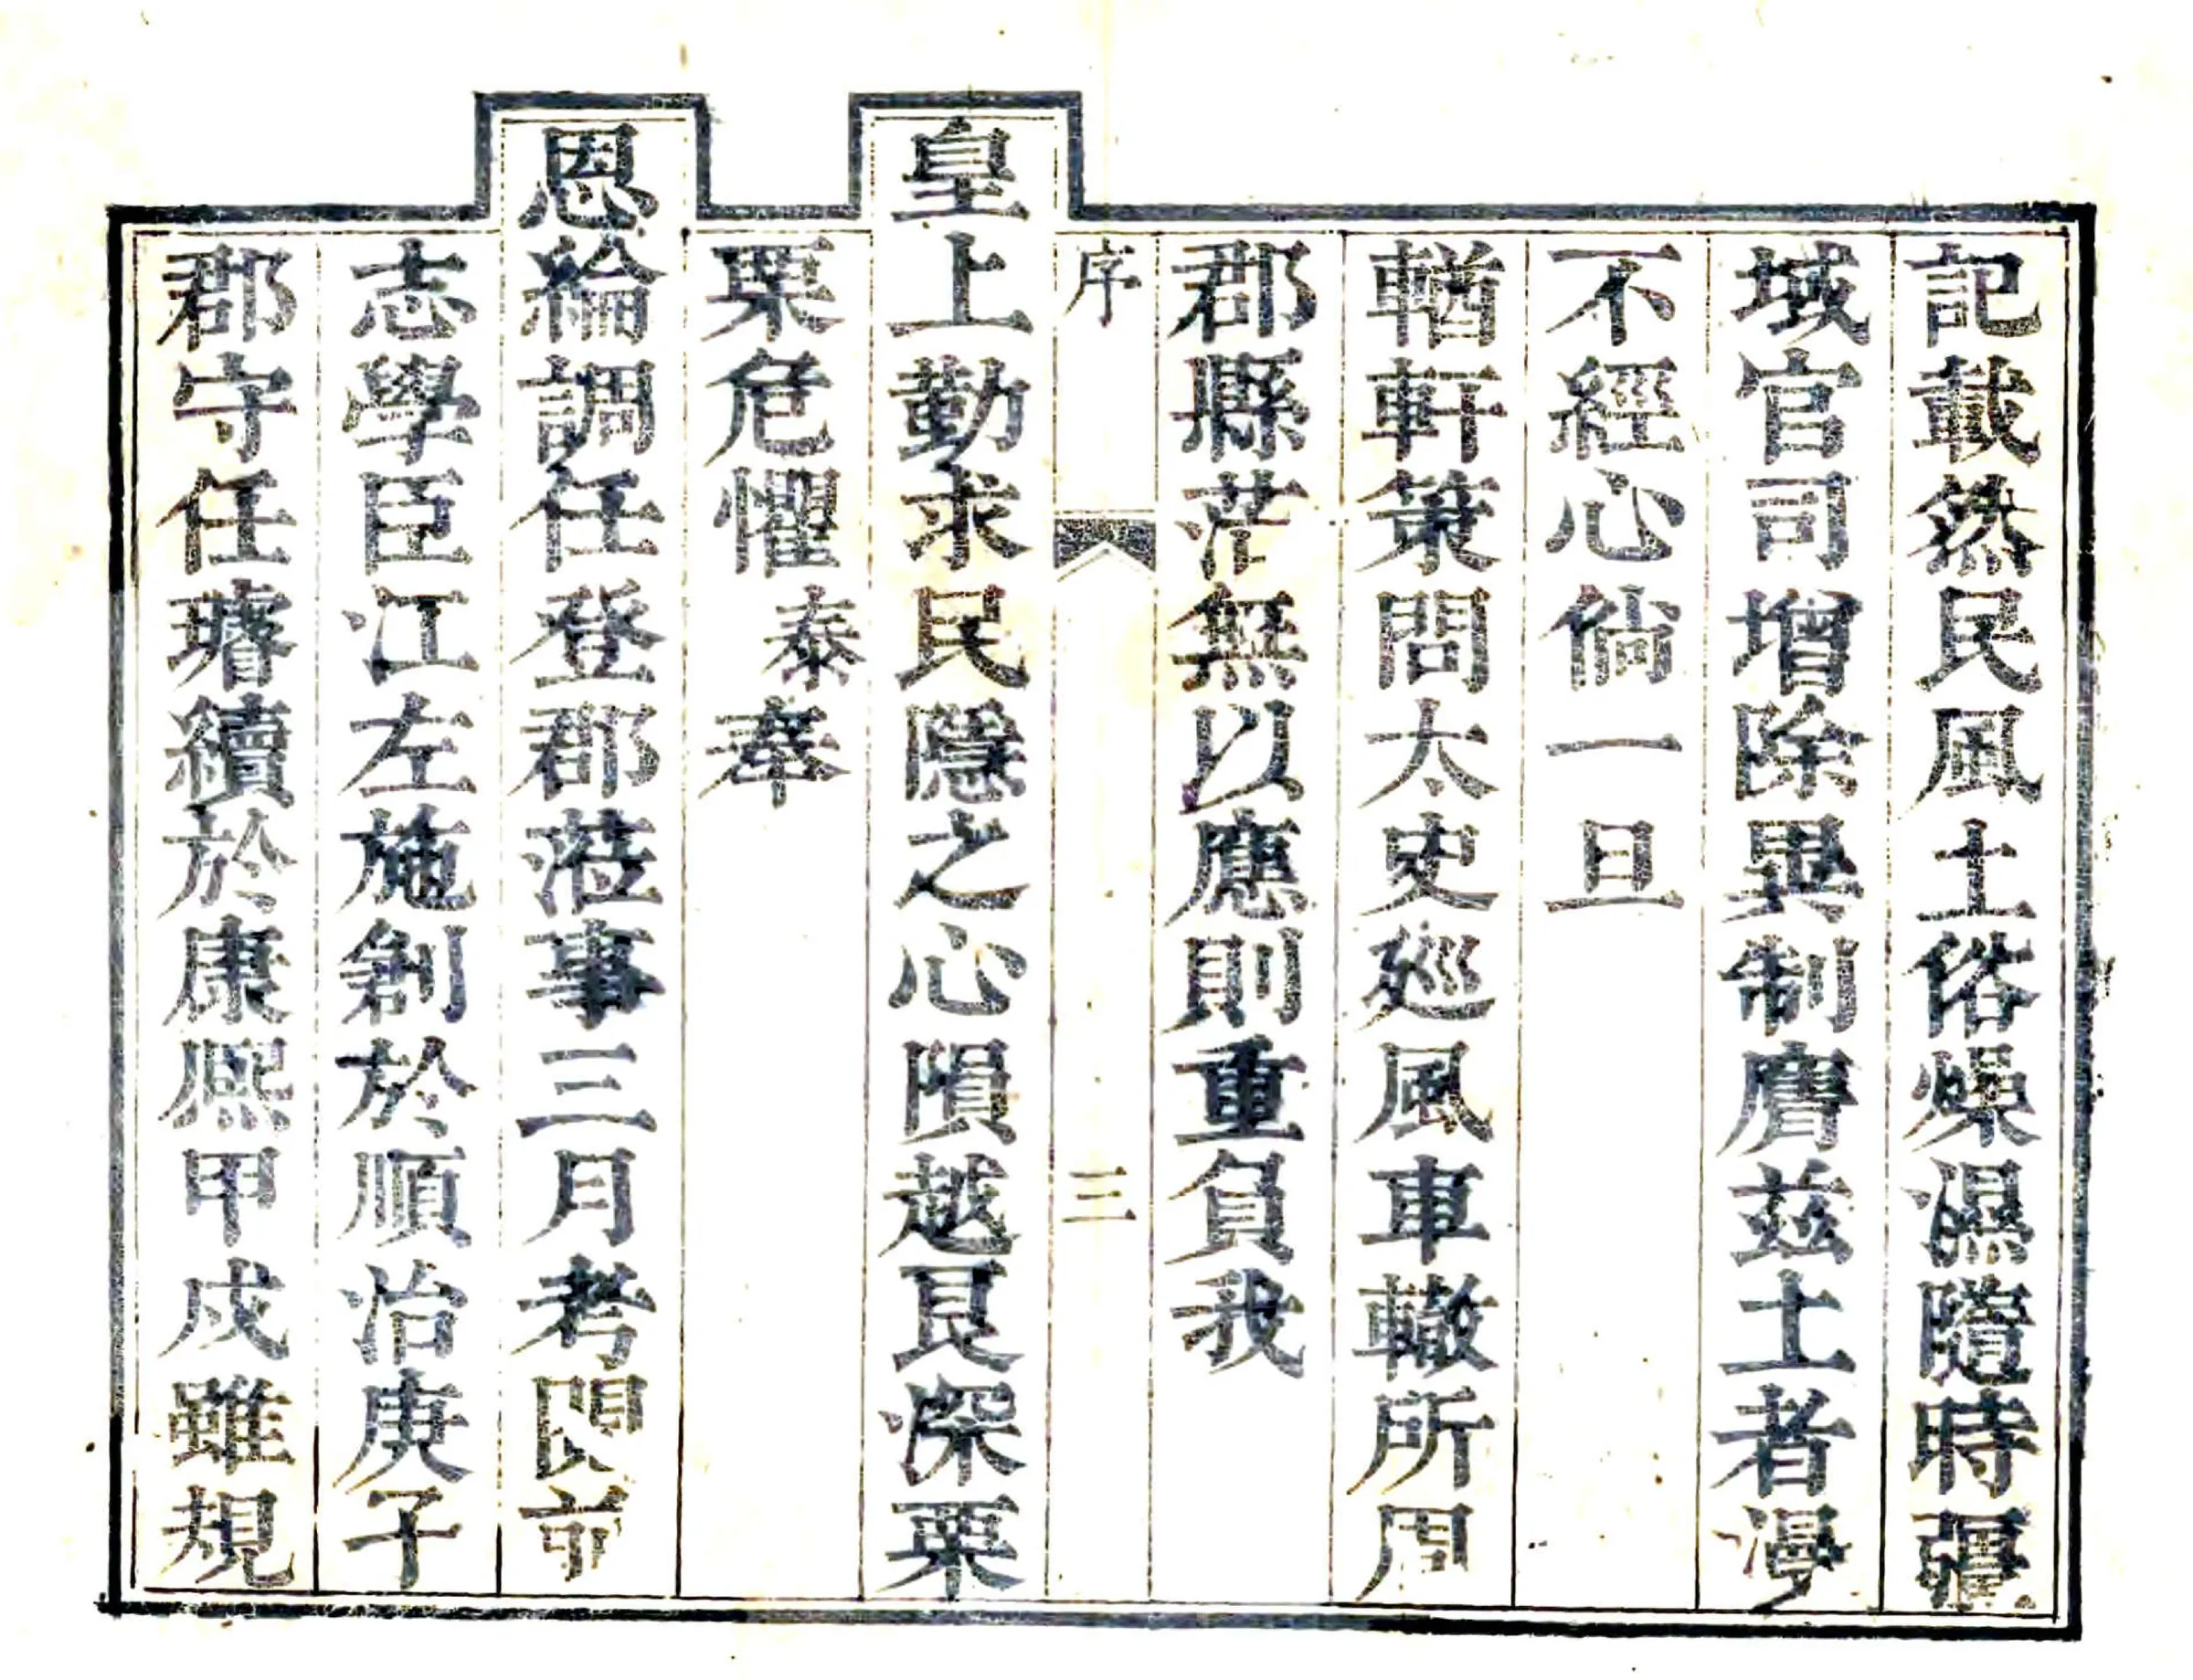 記載然民風土俗燥濕隨時疆
域官司增除異制膺茲土者漫
不經心倘一旦
輶軒策問太史廵風車轍所周
郡縣茫無以應則重負我
序 三
皇上勤求民隱之心隕越艮深栗
栗危懼泰奉
恩綸調任登郡蒞事三月考閱前
志學臣江左施創於順治庚子
郡守任璿續於康熙甲戍雖規